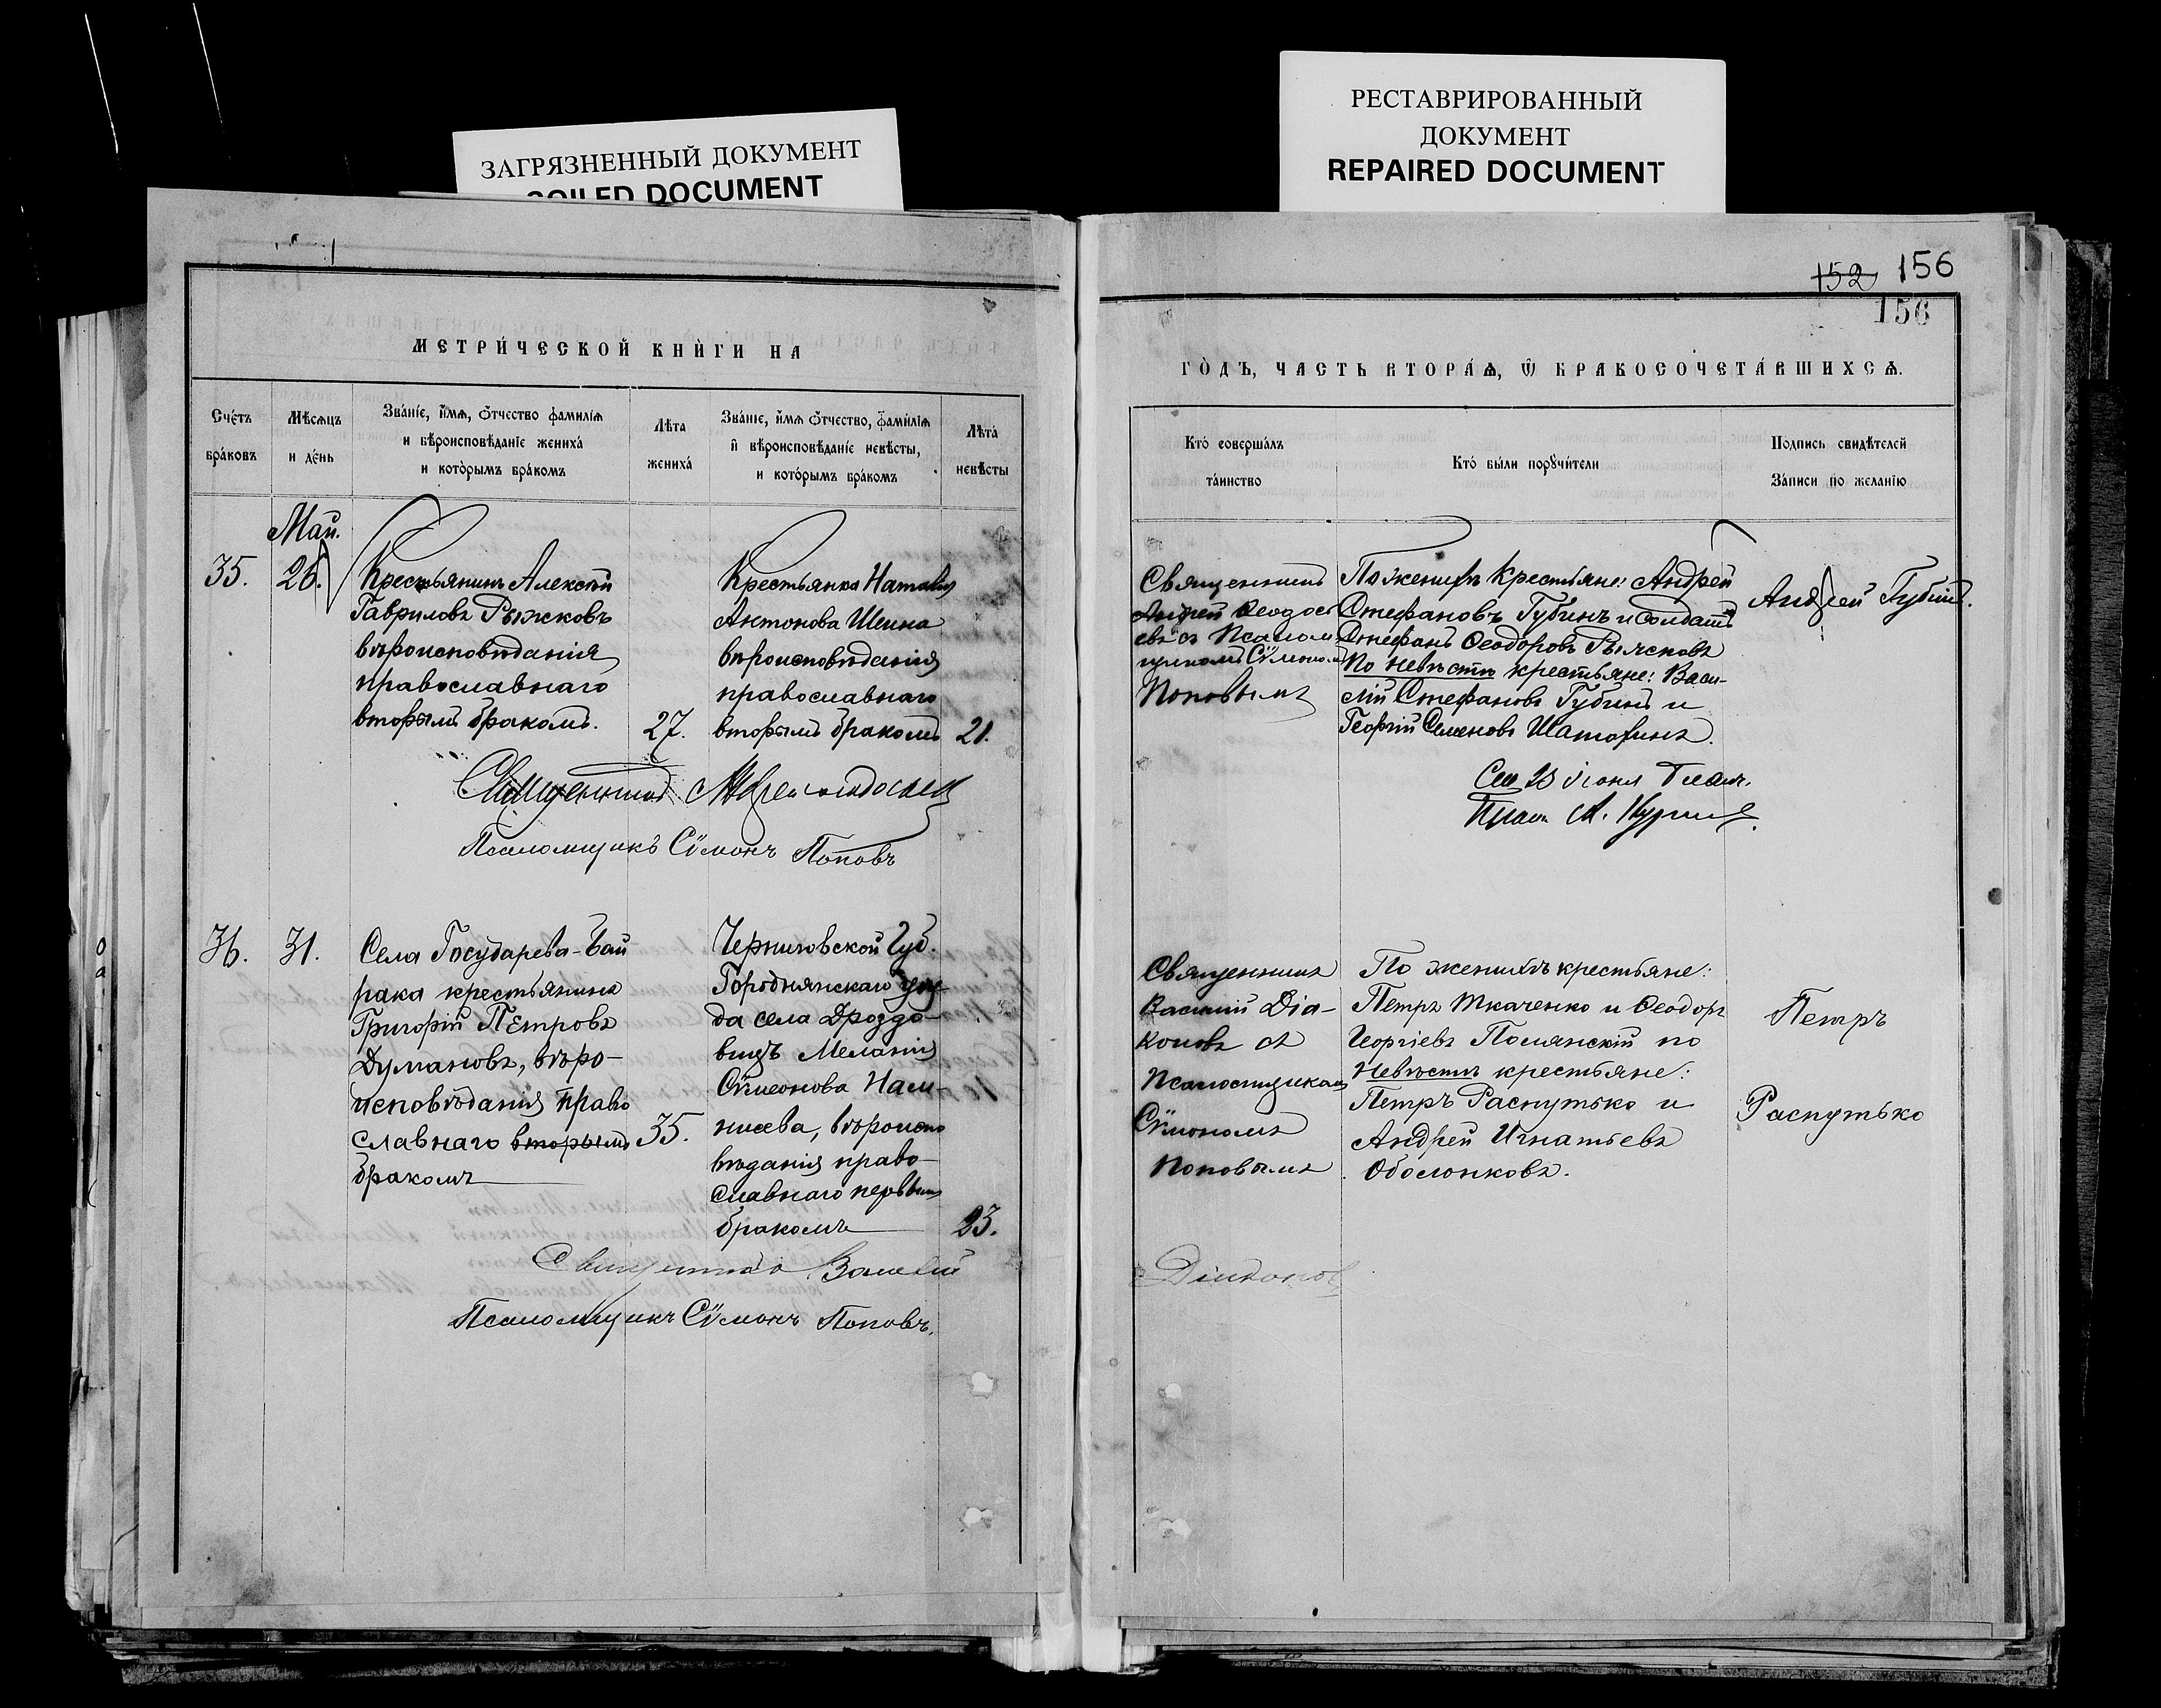 ЗАГРЯЗНЕННЫЙ ДОКУМЕНТ
SOILED DOCUMENT
РЕСТАВРИРОВАННЫЙ
ДОКУМЕНТ
REPAIRED DOCUMENT
МЕТРИ́ЧЕСКОЙ КНИ́ГИ НА
Сче́тъ
бра́ковъ
Мѣ́сѧцъ
и де́нь
Зва́нїе, и́мѧ, ѻ́тчество фами́лїѧ
и вѣроисповѣ́данїе жениха́
и кото́рымъ бра́комъ
Лѣ́та
жениха́
Зва́нїе, и́мѧ ѻ́тчество, фами́лїѧ
и҆ вѣроисповѣ́данїе невѣ́сты,
и кото́рымъ бра́комъ
Лѣ́та
невѣ́сты
Май.
35.
26.
Крестьянинъ Алексѣй
Гавриловъ Рыжковъ
вѣроисповѣданія
православнаго
вторымъ бракомъ.
27.
Крестьянка Наталія
Антонова Шеина
вѣроисповѣданія
православнаго
вторымъ бракомъ
21.
Священникъ Андрей
Псаломщикъ Сѵмонъ Поповъ
36.
31.
Села Государева-Бай
рака крестьянинъ
Григорій Петровъ
Думановъ, вѣро-
исповѣданія право
славнаго вторымъ
бракомъ
35.
Черниговской Губ.
Городнянскаго уѣз
да села Дроздо-
вицъ Меланія
Сѵмеонова
вѣроиспо
вѣданія право-
славнаго первымъ
бракомъ
23.
Священникъ Василій
Псаломщикъ Сѵмонъ Поповъ.
152 156
156
ГО́ДЪ, ЧАСТЬ ВТОРА́Ѧ, Ѿ БРАКОСОЧЕТА́ВШИХСѦ.
Кто́ соверша́лъ
та́инство
Кто́ бы́ли порꙋчи́тели
По́дпись свидѣ́телей
За́писи по жела́нїю
Священникъ
Андрей Ѳеодосі
евъ съ Псалом
щикомъ Сѵмономъ
Поповымъ
По женихѣ крестьяне: Андрей
Стефановъ Губинъ и солдатъ
Стефанъ Ѳеодоровъ Рыжковъ
По невѣстѣ крестьяне: Васи-
лій Стефановъ Губинъ и
Георгій Семеновъ Шаторинъ.
Андрей Губинъ.
Священникъ
Василій Діа-
коновъ съ
Псаломщикомъ
Сѵмономъ
Поповымъ
По женихѣ крестьяне:
Петръ Ткаченко и Ѳеодоръ
Георгіевъ Полянскій по
Невѣстѣ крестьяне:
Петръ Распутько и
Андрей Игнатьевъ
Оболонковъ.
Петръ
Распутько
Діаконовъ